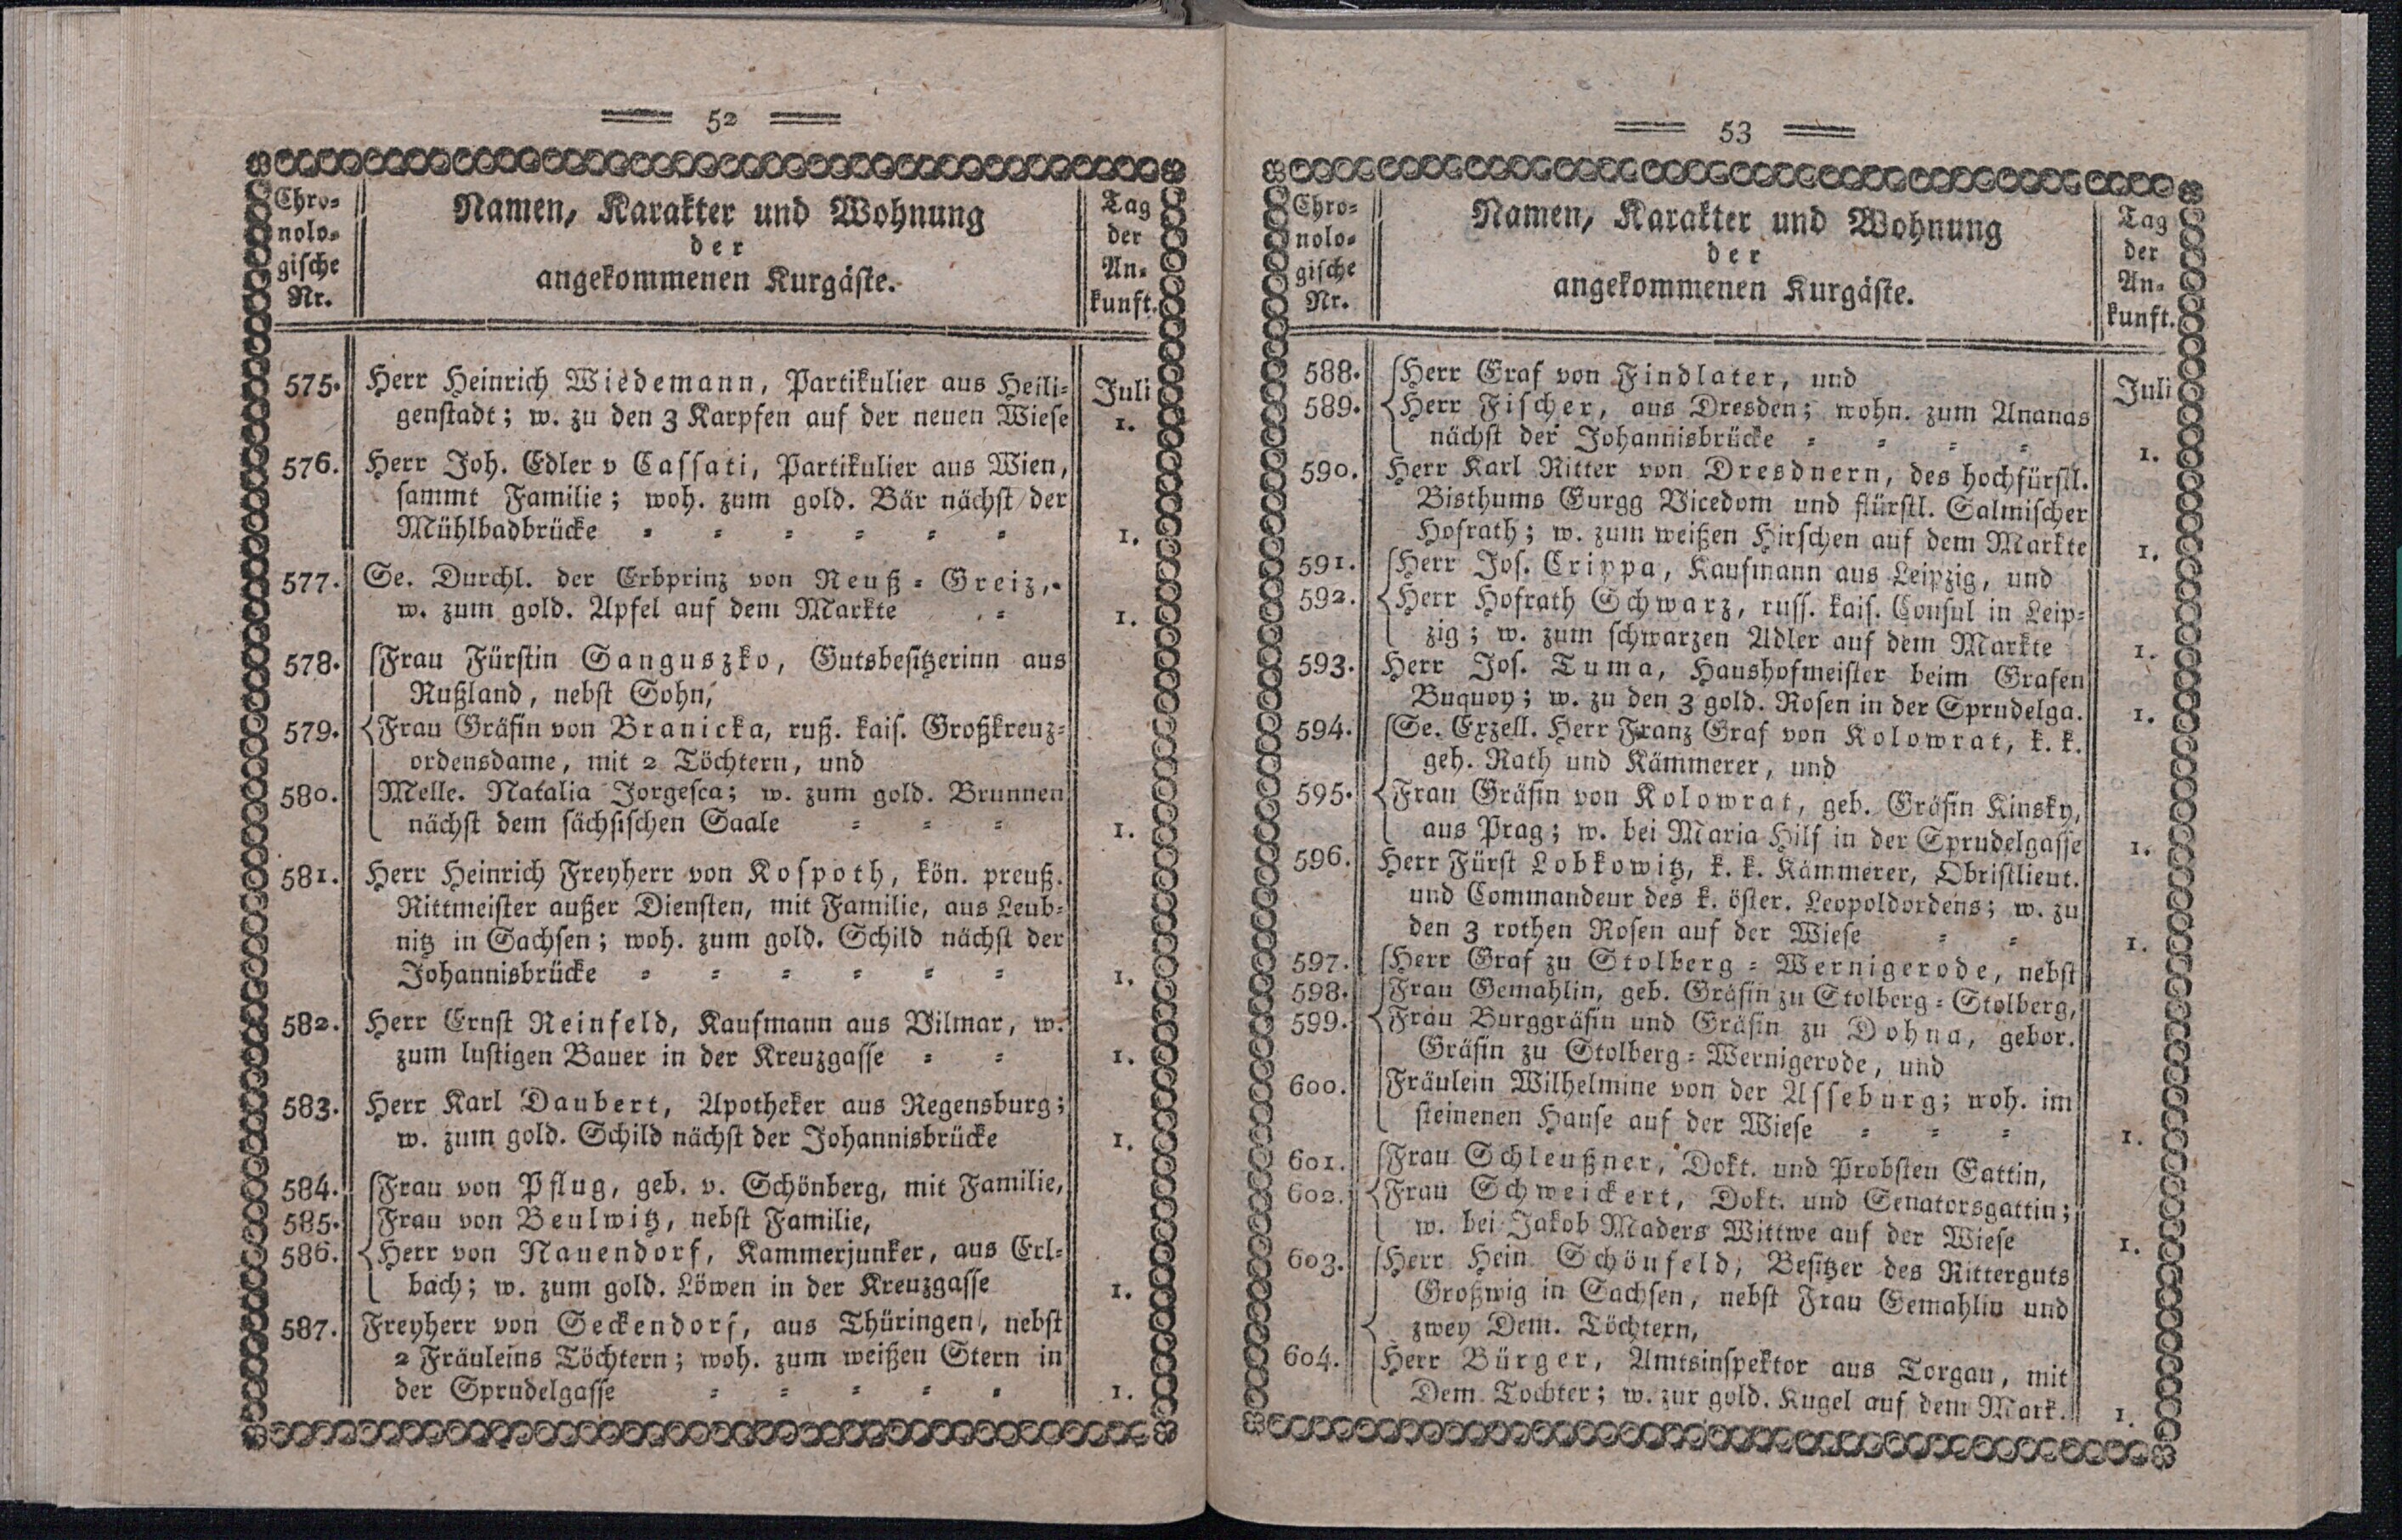 52
Chro-
nolo-
gische
Nr.
Namen, Karakter und Wohnung
der
angekommenen Kurgäste.
Tag
der
An-
kunft.
Juli
575. Herr Heinrich Wiedemann, Partikulier aus Heili-
genstadt; w. zu den 3 Karpfen auf der neuen Wiese 1.
576. Herr Joh. Edler v Cassati, Partikulier aus Wien,
sammt Familie; woh. zum gold. Bär nächst der
Mühlbadbrücke = = = = = = 1.
577. Se. Durchl. der Erbprinz von Reuß-Greiz,
w. zum gold. Apfel auf dem Markte = 1.
578. Frau Fürstin Sanguszko, Gutsbesitzerinn aus
Rußland, nebst Sohn,
579. Frau Gräfin von Branicka, ruß. kais. Großkreuz-
ordensdame, mit 2 Töchtern, und
580. Melle. Natalia Jorgesca; w. zum gold. Brunnen
nächst dem sächsischen Saale = = = 1.
581. Herr Heinrich Freyherr von Kospoth, kön. preuß.
Rittmeister außer Diensten, mit Familie, aus Leub-
nitz in Sachsen; woh. zum gold. Schild nächst der
Johannisbrücke = = = = = = 1.
582. Herr Ernst Reinfeld, Kaufmann aus Vilmar, w.
zum lustigen Bauer in der Kreuzgasse = = 1.
583. Herr Karl Daubert, Apotheker aus Regensburg;
w. zum gold. Schild nächst der Johannisbrücke 1.
584. Frau von Pflug, geb. v. Schönberg, mit Familie,
585. Frau von Beulwitz, nebst Familie,
586. Herr von Nauendorf, Kammerjunker, aus Erl-
bach; w. zum gold. Löwen in der Kreuzgasse 1.
587. Freyherr von Seckendorf, aus Thüringen, nebst
2 Fräuleins Töchtern; woh. zum weißen Stern in
der Sprudelgasse = = = = = 1.
53
Chro-
nolo-
gische
Nr.
Namen, Karakter und Wohnung
der
angekommenen Kurgäste.
Tag
der
An-
kunft.
Juli
588. Herr Graf von Findlater, und
589. Herr Fischer, aus Dresden; wohn. zum Ananas
nächst der Johannisbrücke = = = = 1.
590. Herr Karl Ritter von Dresdnern, des hochfürstl.
Bisthums Gurgg Vicedom und fürstl. Salmischer
Hofrath; w. zum weißen Hirschen auf dem Markte 1.
591. Herr Jos. Crippa, Kaufmann aus Leipzig, und
592. Herr Hofrath Schwarz, russ. kais. Consul in Leip-
zig; w. zum schwarzen Adler auf dem Markte 1.
593. Herr Jos. Tuma, Haushofmeister beim Grafen
Buquoy; w. zu den 3 gold. Rosen in der Sprudelga. 1.
594. Se. Exzell. Herr Franz Graf von Kolowrat, k. k.
geh. Rath und Kämmerer, und
595. Frau Gräfin von Kolowrat, geb. Gräfin Kinsky,
aus Prag; w. bei Maria Hilf in der Sprudelgasse 1.
596. Herr Fürst Lobkowitz, k. k. Kämmerer, Obristlieut.
und Commandeur des k. öster. Leopoldordens; w. zu
den 3 rothen Rosen auf der Wiese = = 1.
597. Herr Graf zu Stolberg-Wernigerode, nebst
598. Frau Gemahlin, geb. Gräfin zu Stolberg-Stolberg,
599. Frau Burggräfin und Gräfin zu Dohna, gebor.
Gräfin zu Stolberg-Wernigerode, und
600. Fräulein Wilhelmine von der Asseburg; woh. im
steinenen Hause auf der Wiese = = = 1.
601. Frau Schleußner, Dokt. und Probsten Gattin,
602. Frau Schweickert, Dokt. und Senatorsgattin;
w. bei Jakob Maders Wittwe auf der Wiese 1.
603. Herr Hein Schönfeld, Besitzer des Ritterguts
Großwig in Sachsen, nebst Frau Gemahlin und
zwey Dem. Töchtern,
604. Herr Bürger, Amtsinspektor aus Torgau, mit
Dem Tochter; w. zur gold. Kugel auf dem Mark. 1.